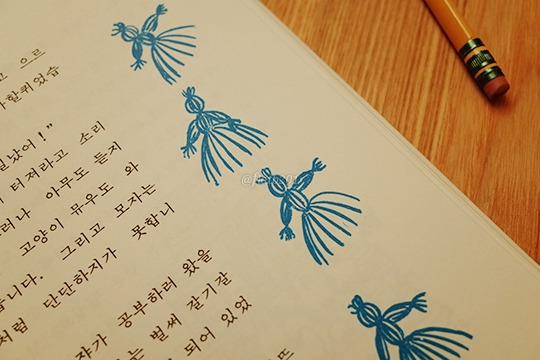 고 으르
할퀴었습
났어!”
터져라고 소리
러나 아무도 듣지
고양이 뮤우도 와
습니다. 그리고 모자는
처럼 단단하지가 못합니
쟈가 공부하러 왔을
는 벌써 갈기갈
되어 있었